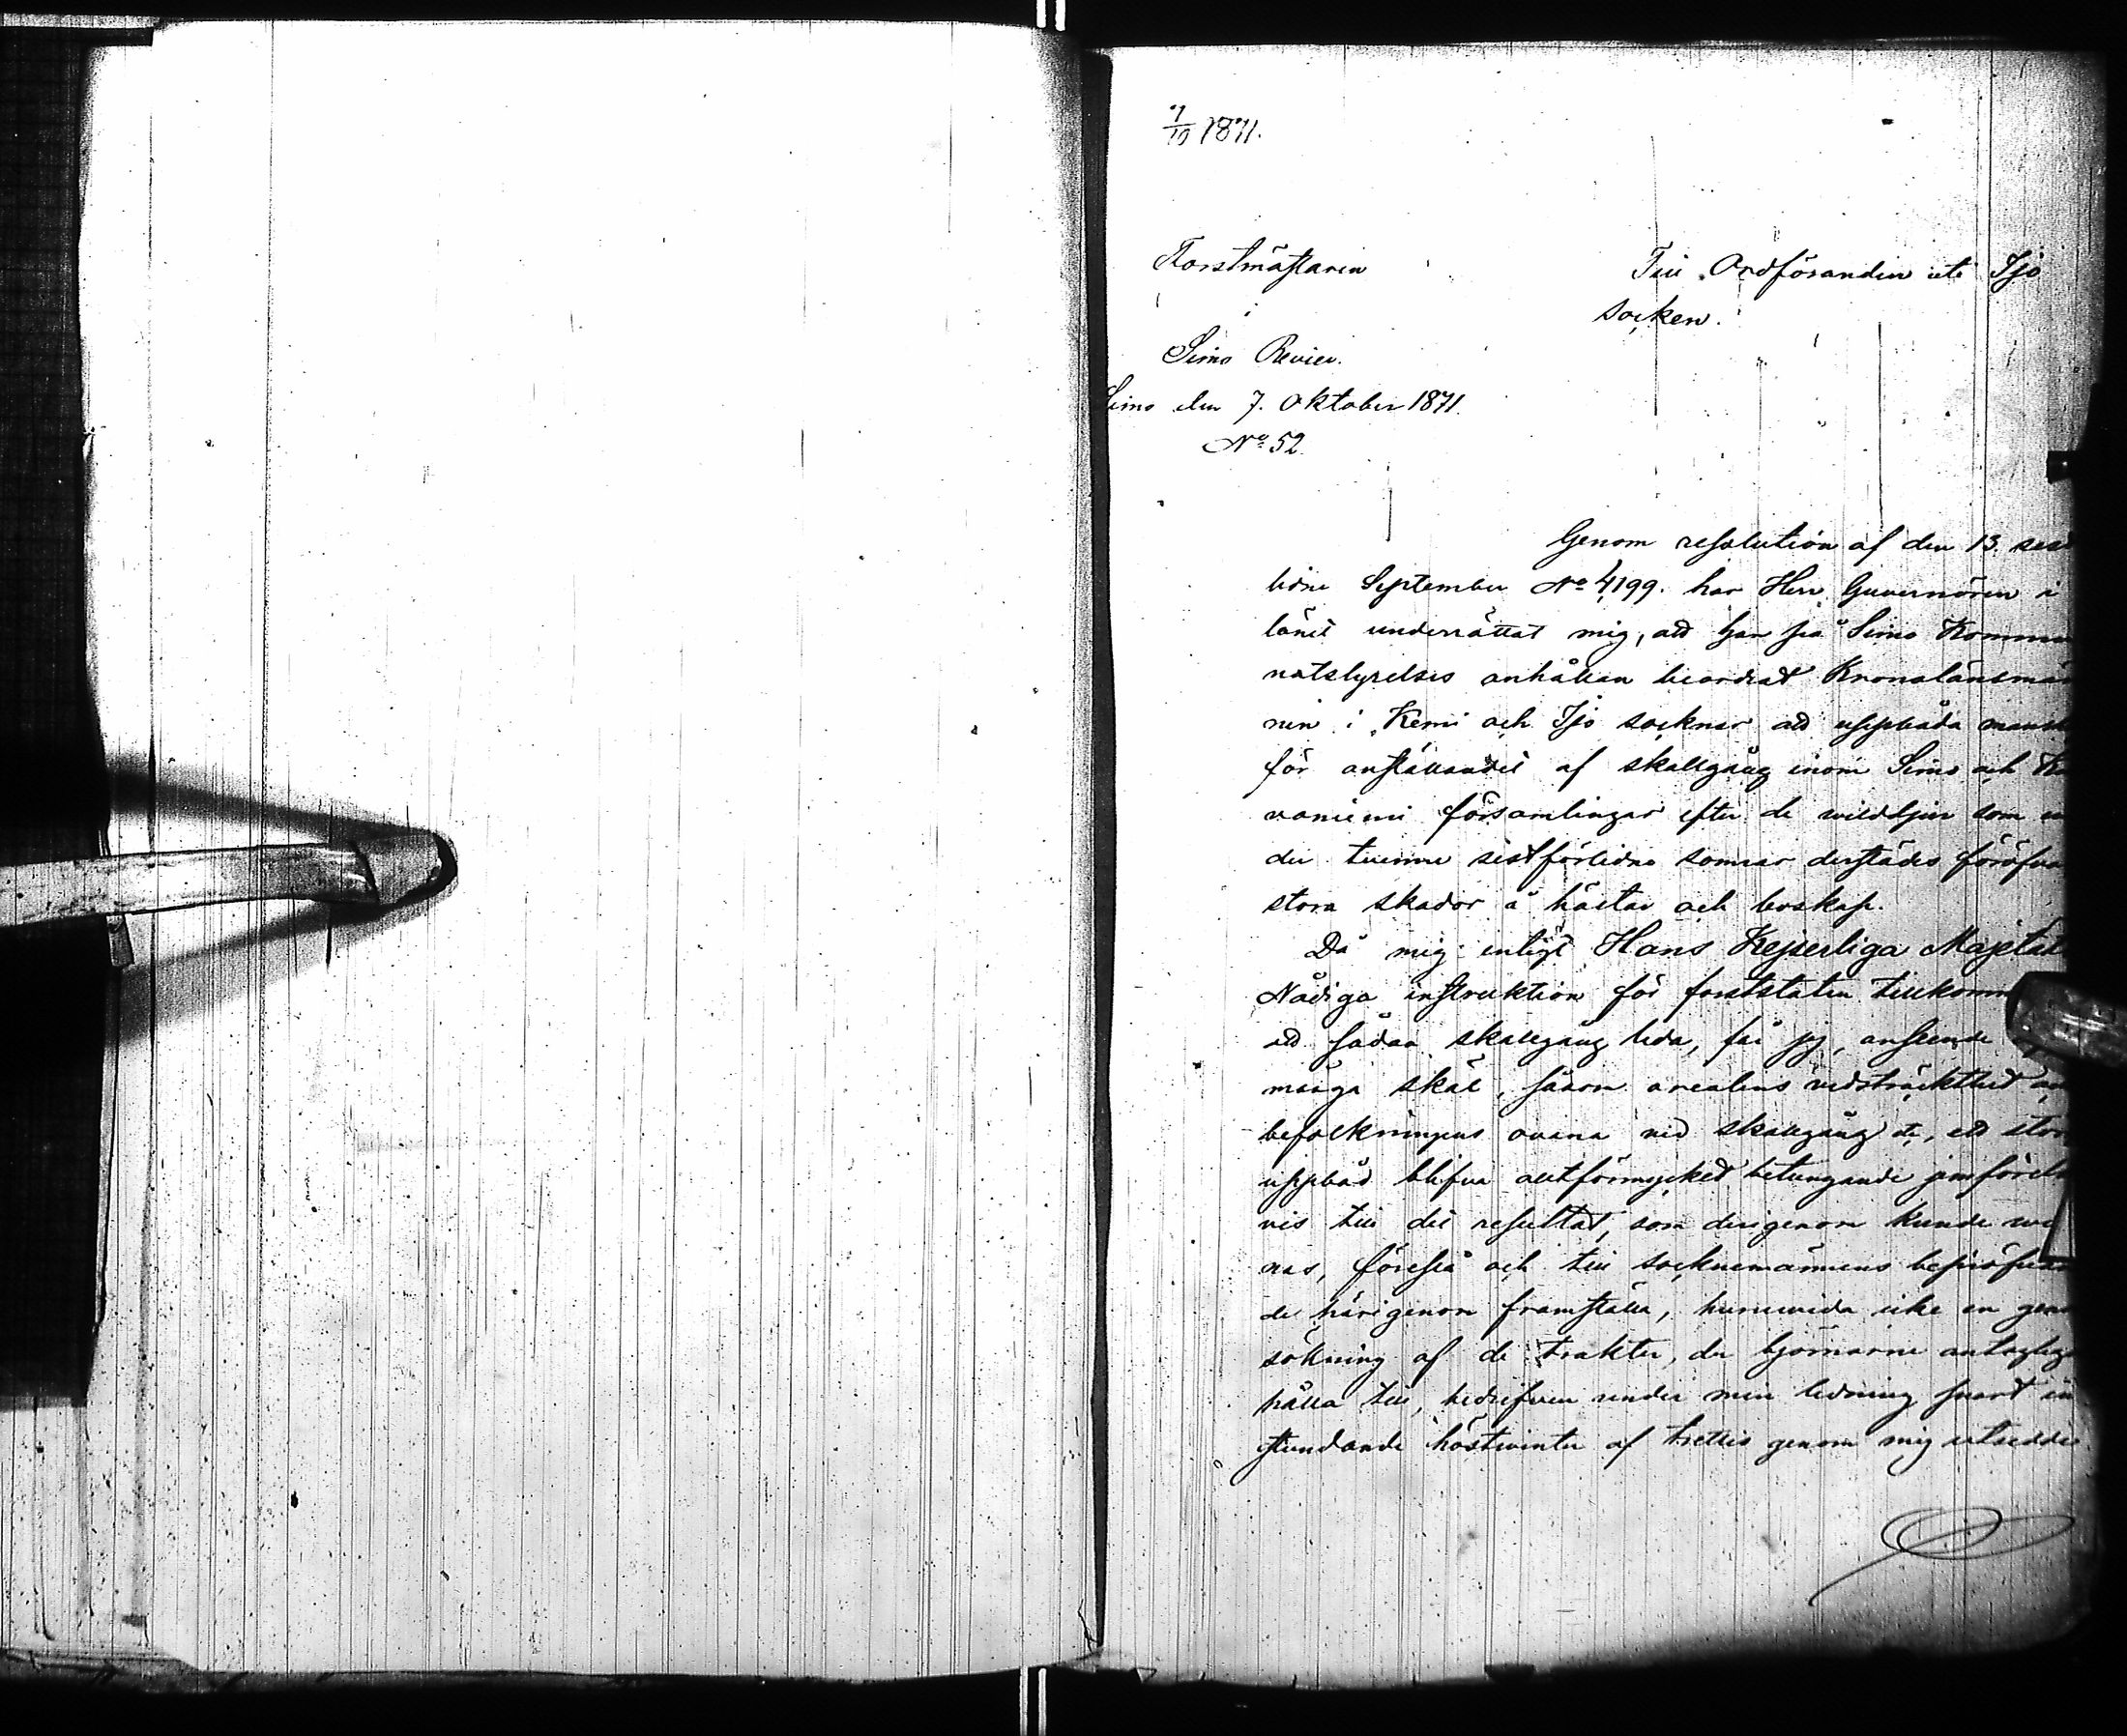 7/10 1871.
Forstmästaren
i
Simo Revier.
Simo den 7. Oktober 1871.
No 52.
Till Ordföranden uti Ijo
socken.
Genom resolution af den 13. sist
lidne September No 4,199. har Herr Guvernören i
länet underrättat mig, att han på Simo Kommu
nalstyrelses anhållan beordrat Kronolänsmän
nen i Kemi och Ijo socknar att uppbåda manskap
för anställandet af skallgång inom Simo och
vaniemi församlingar efter de vilddjur som
der tvenne sistförlidna somrar derstädes föröfvat
stora skador å hästar och boskap.
Då mig enligt Hans Kejserliga Majestäts
Nådiga instruktion för forststaten tillkommer
att sådan skallgång leda, får jag, anseende
många skäl, såsom arealens vidsträckthet
befolkningens ovana vid skallgång etc, ett stort
uppbåd blifva alltförmycket betungande jemförelse
vis till det resultat, som derigenom kunde vin
nas, föreslå och till socknemännens bepröfvan
de härigenom framställa, huruvida icke en genom
sökning af de trakter, der björnarne antagligen
hålla till, bedrifven under min ledning snart in
stundande höstvinter af trettio genom mig utsedde